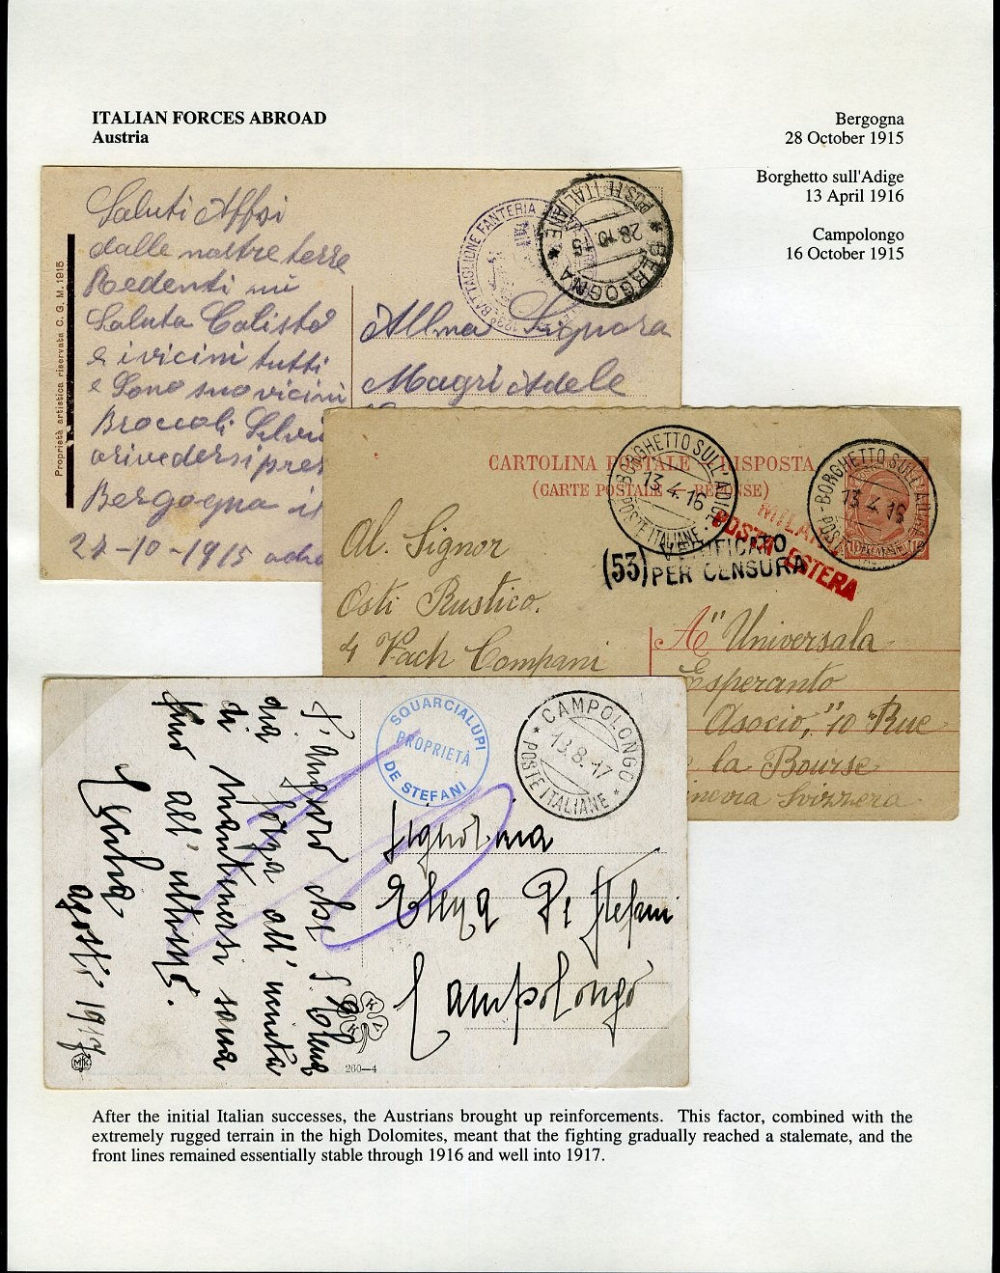 ITALIAN FORCES ABROAD
Austria
Bergogna
28 October 1915
Borghetto sull'Adige
13 April 1916
Campolongo
16 October 1915
Saluti Affsi
dalle nostre terre
Redenti mi
Saluta Calisto
e i vicini tutti
e sono suo vicini
Broccoli
arivedersi pres
Bergogna
27-10-1915
Proprietà artistica riservata C. G. M. 1915
BATTAGLIONE FANTERIA
POSTE ITALIANE
28.10.15
* BERGOGNA *
Alma Signora
Magri Adele
CARTOLINA POSTALE RISPOSTA
(CARTE POSTALE RÉPONSE)
BORGHETTO SULL'ADIGE
13.4.16
POSTE ITALIANE
BORGHETTO SULL'ADIGE
13.4.16
POSTE ITALIANE
MILANO
POSTA ESTERA
(53) VERIFICATO
PER CENSURA
Al. Signor
Osti Rustico.
4 Vach Compani
A" Universala
Esperanto
Asocio," 10 Rue
la Bourse
Svizzera
SQUARCIALUPI
PROPRIETÀ
DE STEFANI
* CAMPOLONGO *
13.8.17
POSTE ITALIANE
T'auguro che
forza all'
di mantenersi
fino all' ultimo.
1917
Signorina
De Stefani
Campolongo
MK
260—4
After the initial Italian successes, the Austrians brought up reinforcements. This factor, combined with the
extremely rugged terrain in the high Dolomites, meant that the fighting gradually reached a stalemate, and the
front lines remained essentially stable through 1916 and well into 1917.